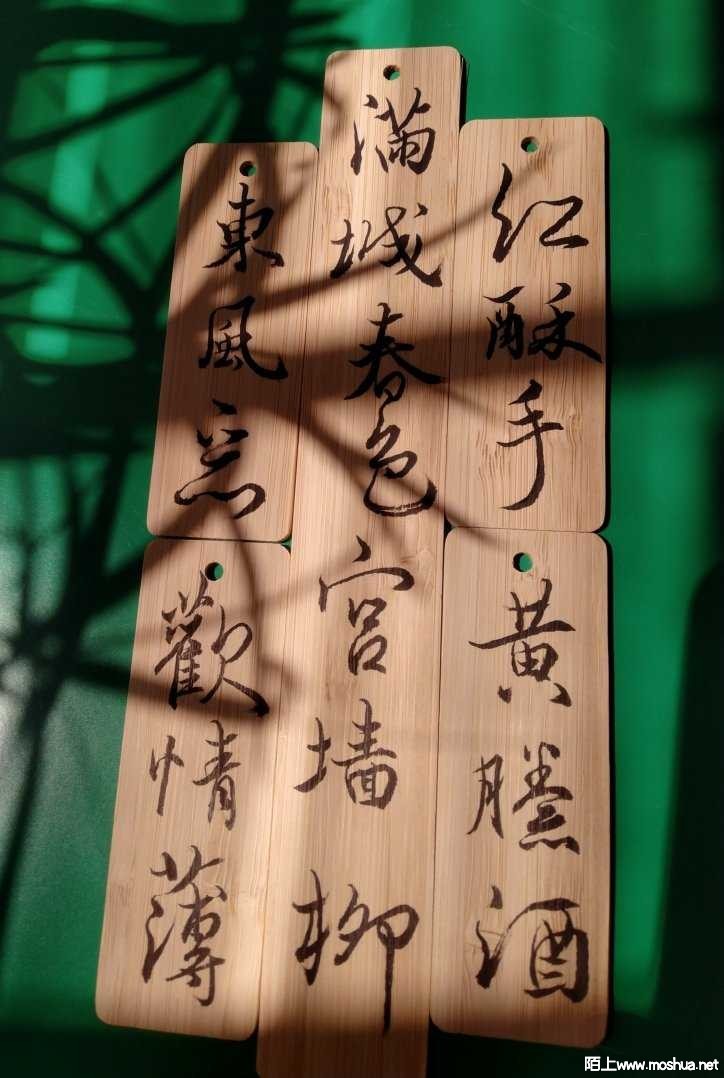 红酥手
黄縢酒
满城春色宫墙柳
東風恶
歡情薄
陌上www.moshua.net